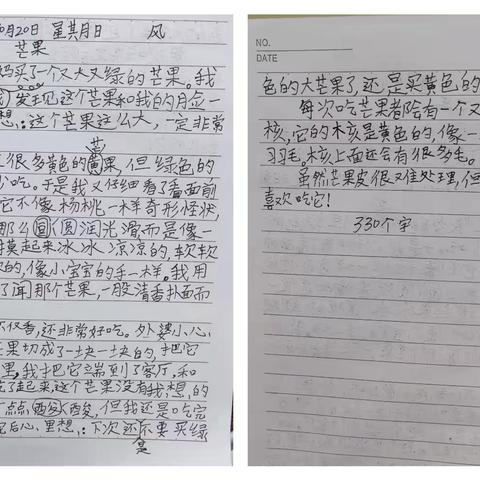 月20日 星其月日 风
芒果
妈买了一个又大又绿的芒果。我
发现这个芒果和我的月佥一
想:这个芒果这么大,一定非常
芒
很多黄色的黄果,但绿色的
少吃。于是我又仔细看了看面前
它不像杨桃一样奇形怪状,
那么圆圆润光滑而是像一
摸起来冰冰凉凉的,软软
的,像小宝宝的手一样。我用
了闻那个芒果,一股清香扑面而
不仅香,还非常好吃。外婆小心
芒果切成了一块一块的,把它
里,我把它端到了客厅,和
吃了起来这个芒果没有我想的
点点酸酸,但我还是吃完
后心里想:下次还不要买绿
是
NO.
DATE
色的大芒果了,还是买黄色的
每次吃芒果都会有一个又
核,它的核是黄色的,像一
羽毛。核上面还会有很多毛。
虽然芒果皮很难处理,但
喜欢吃它!
330个字